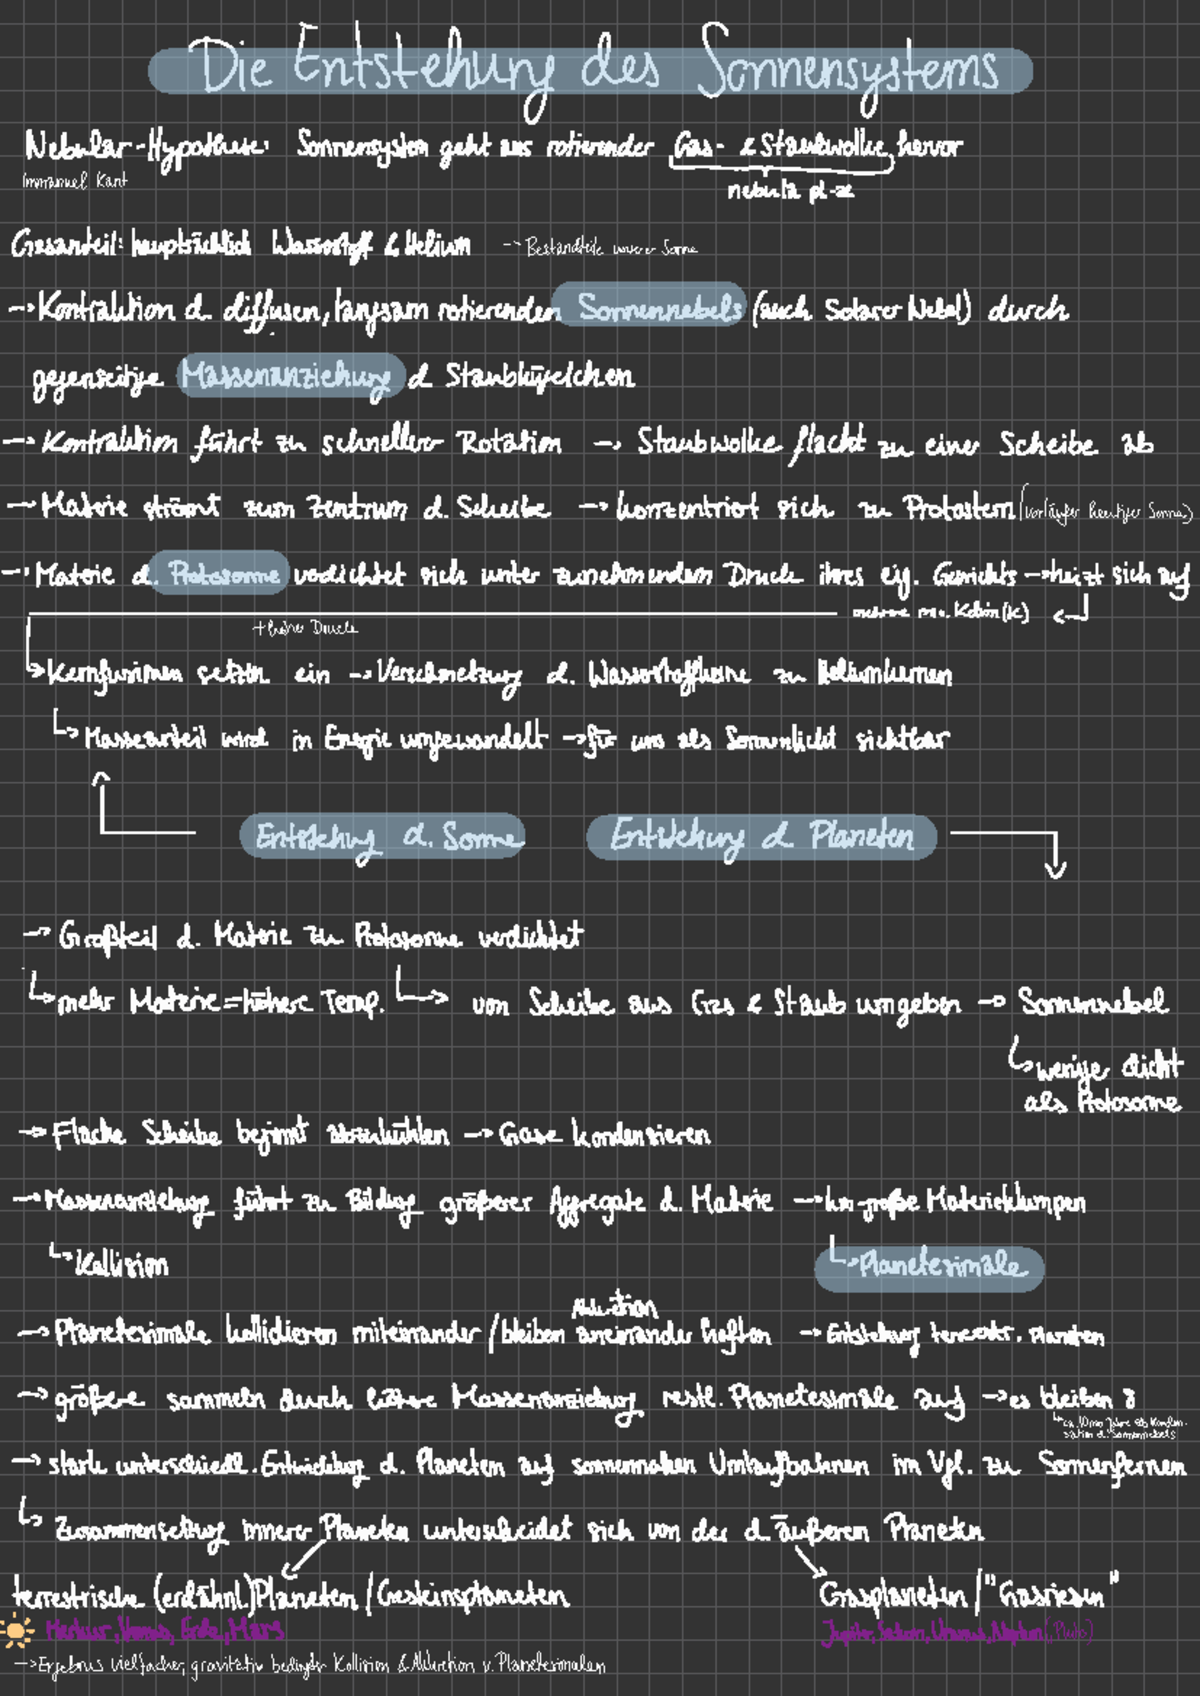 Die Entstehung des Sonnensystems
Nebular-Hypothese: Sonnensystem geht aus rotierender Gas- & Staubwolke hervor
Immanuel Kant
nebula pl-ae
Gasanteil: hauptsächlich Wasserstoff & Helium -> Bestandteile unserer Sonne
-> Kontraktion d. diffusen, langsam rotierenden Sonnennebels (auch Solarer Nebel) durch
gegenseitige Massenanziehung d Staubkügelchen
-> Kontraktion führt zu schneller Rotation -> Staubwolke flacht zu einer Scheibe ab
-> Materie strömt zum Zentrum d. Scheibe -> konzentriert sich zu Protostern (Vorläufer heutiger Sonne)
-> Materie d. Protosonne verdichtet sich unter zunehmendem Druck ihres eig. Gewichts -> heizt sich auf
mehrere mio. Kelvin (K)
+ hoher Druck
-> Kernfusionen setzen ein -> Verschmelzung d. Wasserstoffkerne zu Heliumkernen
-> Masseanteil wird in Energie umgewandelt -> für uns als Sonnenlicht sichtbar
Entstehung d. Sonne Entstehung d. Planeten
-> Großteil d. Materie zu Protosonne verdichtet
-> mehr Materie = höhere Temp. -> von Scheibe aus Gas & Staub umgeben -> Sonnennebel
-> weniger dicht
als Protosonne
-> Flache Scheibe beginnt abzukühlen -> Gase kondensieren
-> Massenanziehung führt zu Bildung größerer Aggregate d. Materie -> km-große Materieklumpen
-> Kollision -> Planetesimale
Akkretion
-> Planetesimale kollidieren miteinander / bleiben aneinander haften -> Entstehung terrestr. Planeten
-> größere sammeln durch höhere Massenanziehung restl. Planetesimale auf -> es bleiben 8
-> ca. 10 mio Jahre ab Konden-
sation d. Sonnennebels
-> stark unterschiedl. Entwicklung d. Planeten auf sonnennahen Umlaufbahnen im Vgl. zu Sonnenfernen
-> Zusammensetzung innerer Planeten unterscheidet sich von der d. äußeren Planeten
terrestrische (erdähnl.) Planeten / Gesteinsplaneten Gasplaneten / "Gasriesen"
Merkur, Venus, Erde, Mars Jupiter, Saturn, Uranus, Neptun (, Pluto)
-> Ergebnis vielfacher, gravitativ bedingter Kollision & Akkretion v. Planetesimalen